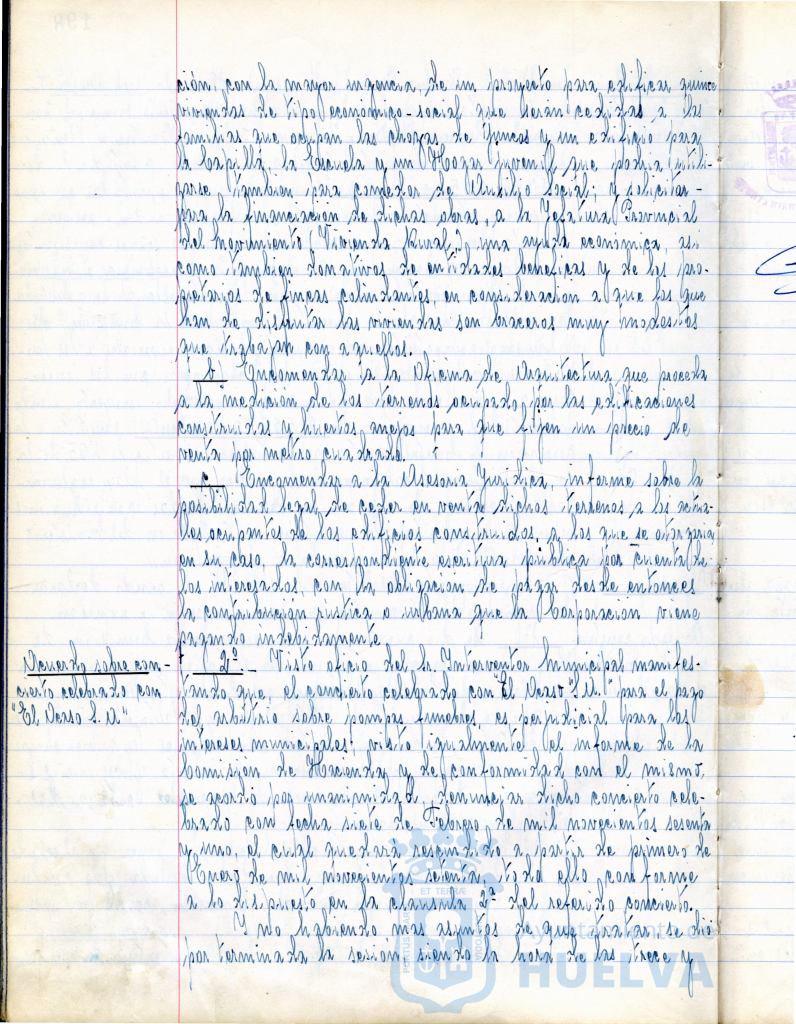 ción, con la mayor urgencia, de un proyecto para edificar quince
viviendas de tipo económico-social que serán cedidas a las
familias que ocupan las chozas de juncos y un edificio para
la Capilla, la Escuela y un Hogar juvenil que podría utili-
zarse también para comedor de Auxilio Social; y solicitar
para la financiación de dichas obras, a la Jefatura Provincial
del Movimiento (Vivienda Rural) una ayuda económica, así
como también donativos de entidades benéficas y de los pro-
pietarios de fincas colindantes, en consideración a que los que
han de disfrutar las viviendas son braceros muy modestos
que trabajan con aquellos.
b) Encomendar a la Oficina de Arquitectura que proceda
a la medición de los terrenos ocupados por las edificaciones
construidas y huertos anejos para que fijen un precio de
venta por metro cuadrado.
c) Encomendar a la Asesoría Jurídica, informe sobre la
posibilidad legal de ceder en venta dichos terrenos a los actua-
les ocupantes de los edificios construidos, a los que se otorgaría
en su caso, la correspondiente escritura pública por cuenta de
los interesados, con la obligación de pagar desde entonces
la contribución rústica o urbana que la Corporación viene
pagando indebidamente.
Acuerdo sobre con-
cierto celebrado con
"El Ocaso S.A."
2º.- Visto oficio del Sr. Interventor Municipal manifes-
tando que, el concierto celebrado con "El Ocaso S.A." para el pago
del arbitrio sobre pompas fúnebres, es perjudicial para los
intereses municipales; visto igualmente el informe de la
Comisión de Hacienda y de conformidad con el mismo,
se acordó por unanimidad, denunciar dicho concierto cele-
brado con fecha siete de Febrero de mil novecientos sesenta
y uno, el cual quedará rescindido a partir de primero de
Enero de mil novecientos setenta, todo ello conforme
a lo dispuesto en la cláusula 2ª del referido concierto.
Y no habiendo más asuntos de que tratar se dió
por terminada la sesión siendo la hora de las trece y
Ayuntamiento de
HUELVA